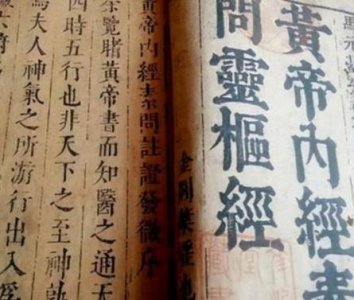 馬元臺
黃帝內經素
問靈樞經
黃帝內經素問註證發微序
覽睹黃帝書而知醫之通天
四時五行也非天下之至神孰
焉夫人神氣之所游行出入
六府